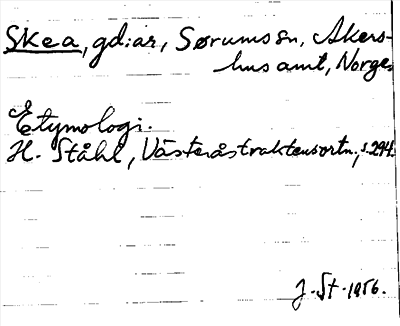 Skea, gd:ar, Sørums sn, Akers-
hus amt, Norge.
Etymologi.
H. Ståhl, Västeråstraktens ortn., s. 294.
J. St. 1956.